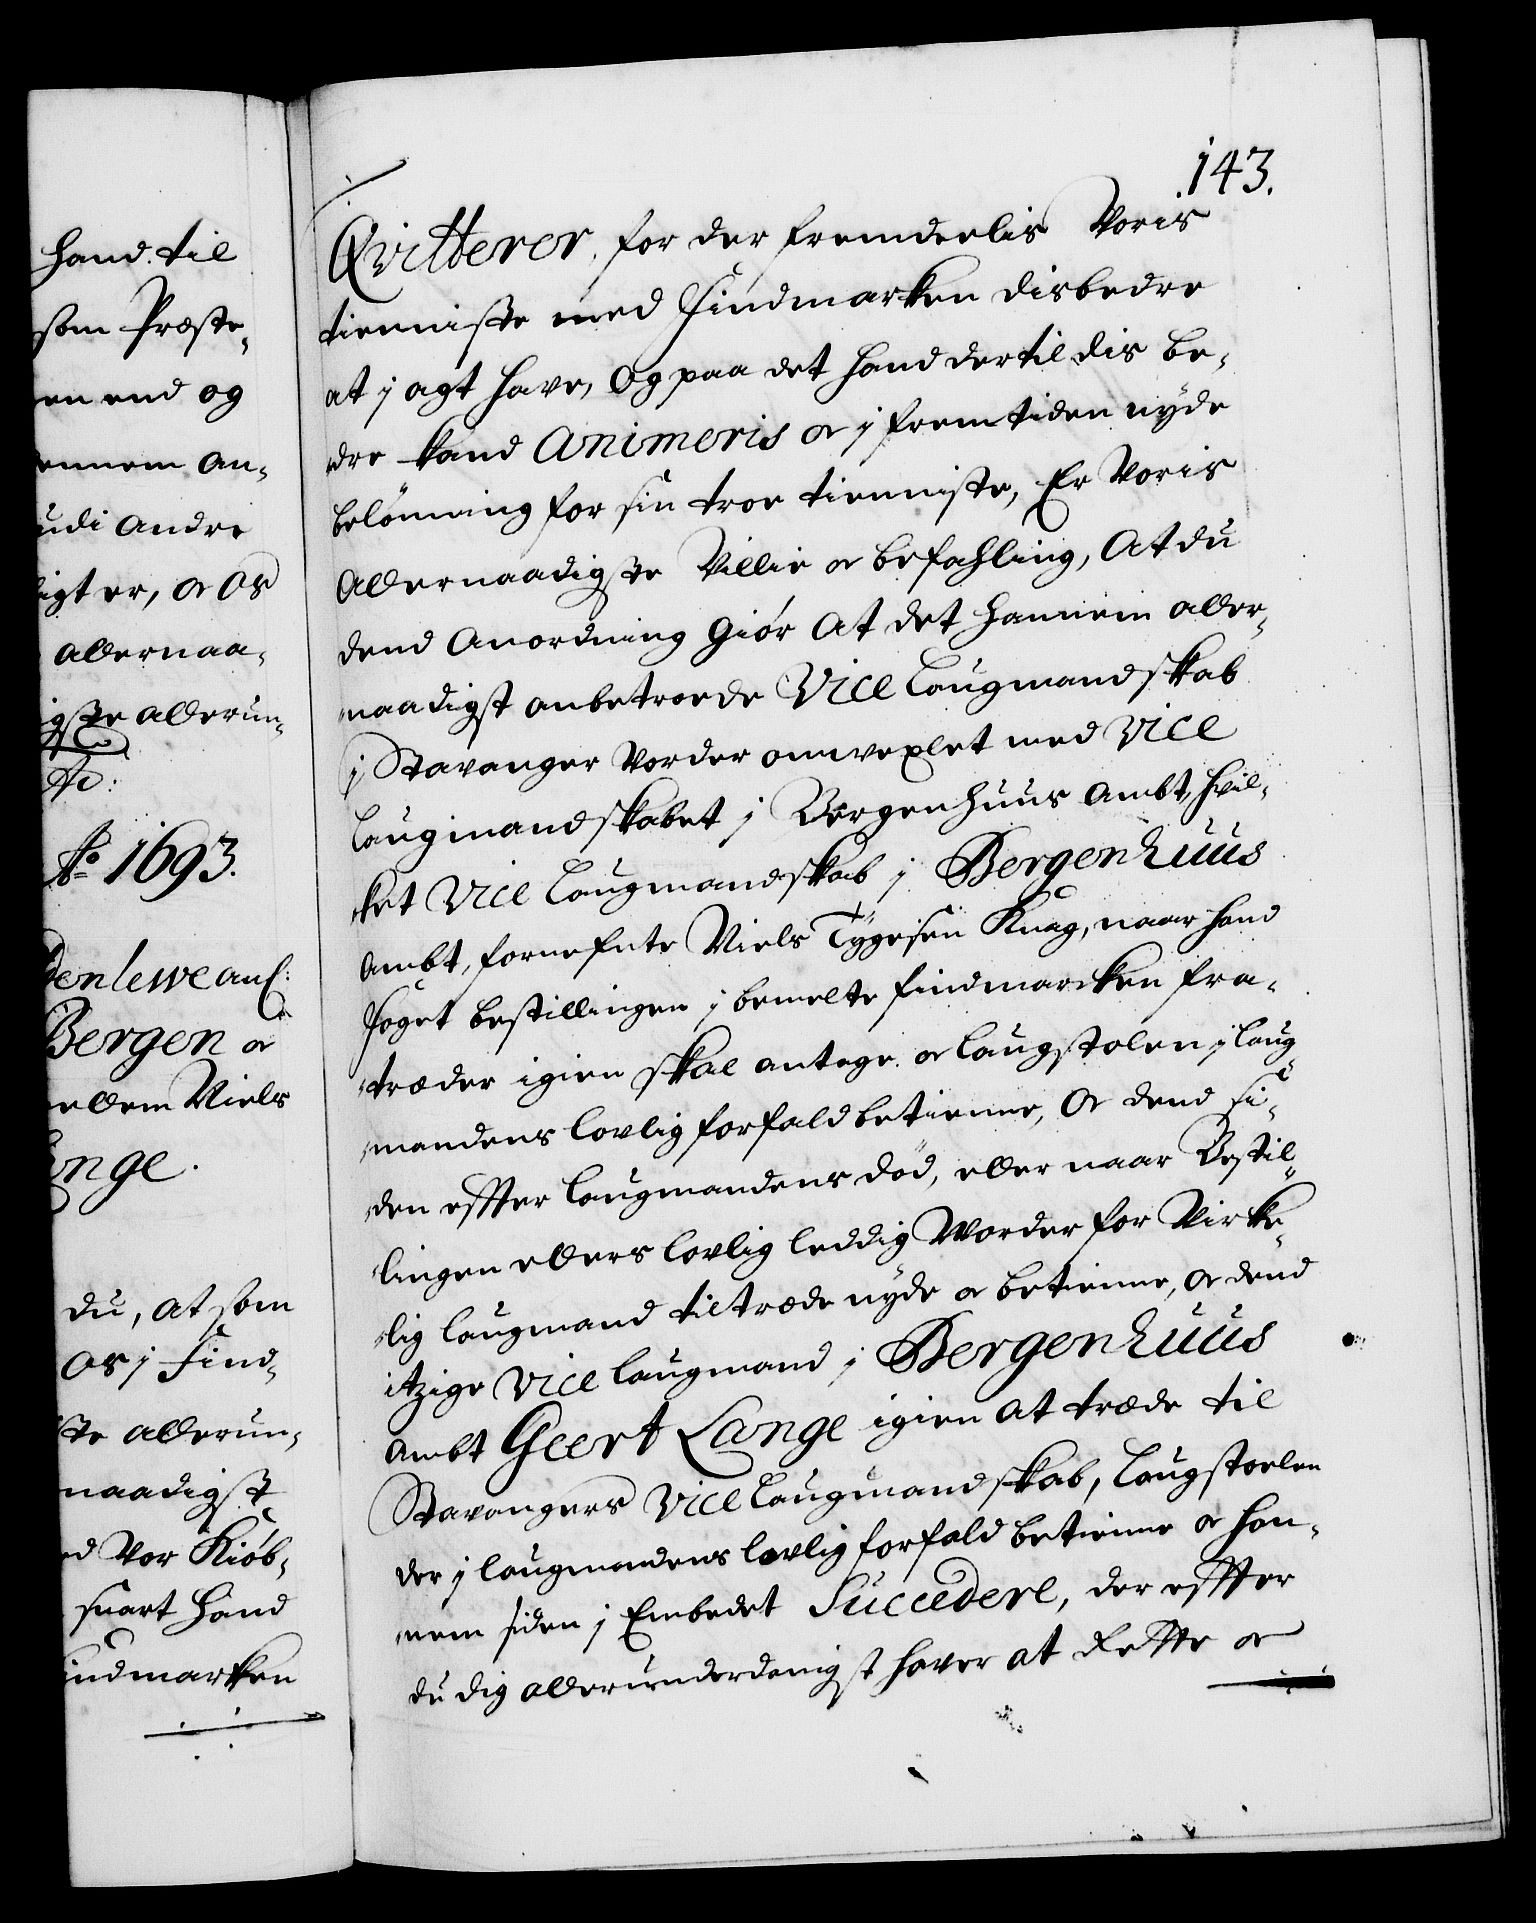 hand til
som Præste-
en end og
ennem an-
udi andre
igt er, oc os
allernaa-
igste allerun-
Ao 1693.
Bergen oc
ellem Niels
ange.
du, at som
os j Find-
ste allerun-
naadigst
ed Vor Kiøb-
snart hand
indmarken
143.
Qvitterer, for der fremdeelis Voris
tienniste med Findmarken disbedre
at j agt have, Og paa det hand dertil dis be-
dre kand Animeris oc j fremtiden nyde
belönning for sin troe tienniste, Er Voris
Allernaadigste Villie oc befahling, At du
dend Anordning Giör At det hannem aller-
naadigst anbetroede Vice Laugmandskab
j Stavanger Vorder omvexlet med Vice
Laugmandskabet j Bergenhuus Ambt, hvil-
ket Vice Laugmandskab j Bergenhuus
Ambt, fornefnte Niels Tÿgesen Knag, naar hand
foget bestillingen j bemelte Findmarcken fra-
træder igien skal antage oc laugstolen j laug-
mandens lovlig forfald betienne, Oc dend si-
den effter Laugmandens död, eller naar Bestil-
lingen ellers lovlig leddig Worder for Virke-
lig Laugmand tiltræde nyde oc betienne, oc dend
itzige Vice Laugmand j Bergenhuus
Ambt Geert Lange igien at træde til
Stavangers Vice Laugmandskab, Laugstoelen
der j laugmandens lovlig forfald betienne oc han-
nem siden j Embedet Succedere, der effter
du dig allerunderdanigst haver at Rette oc